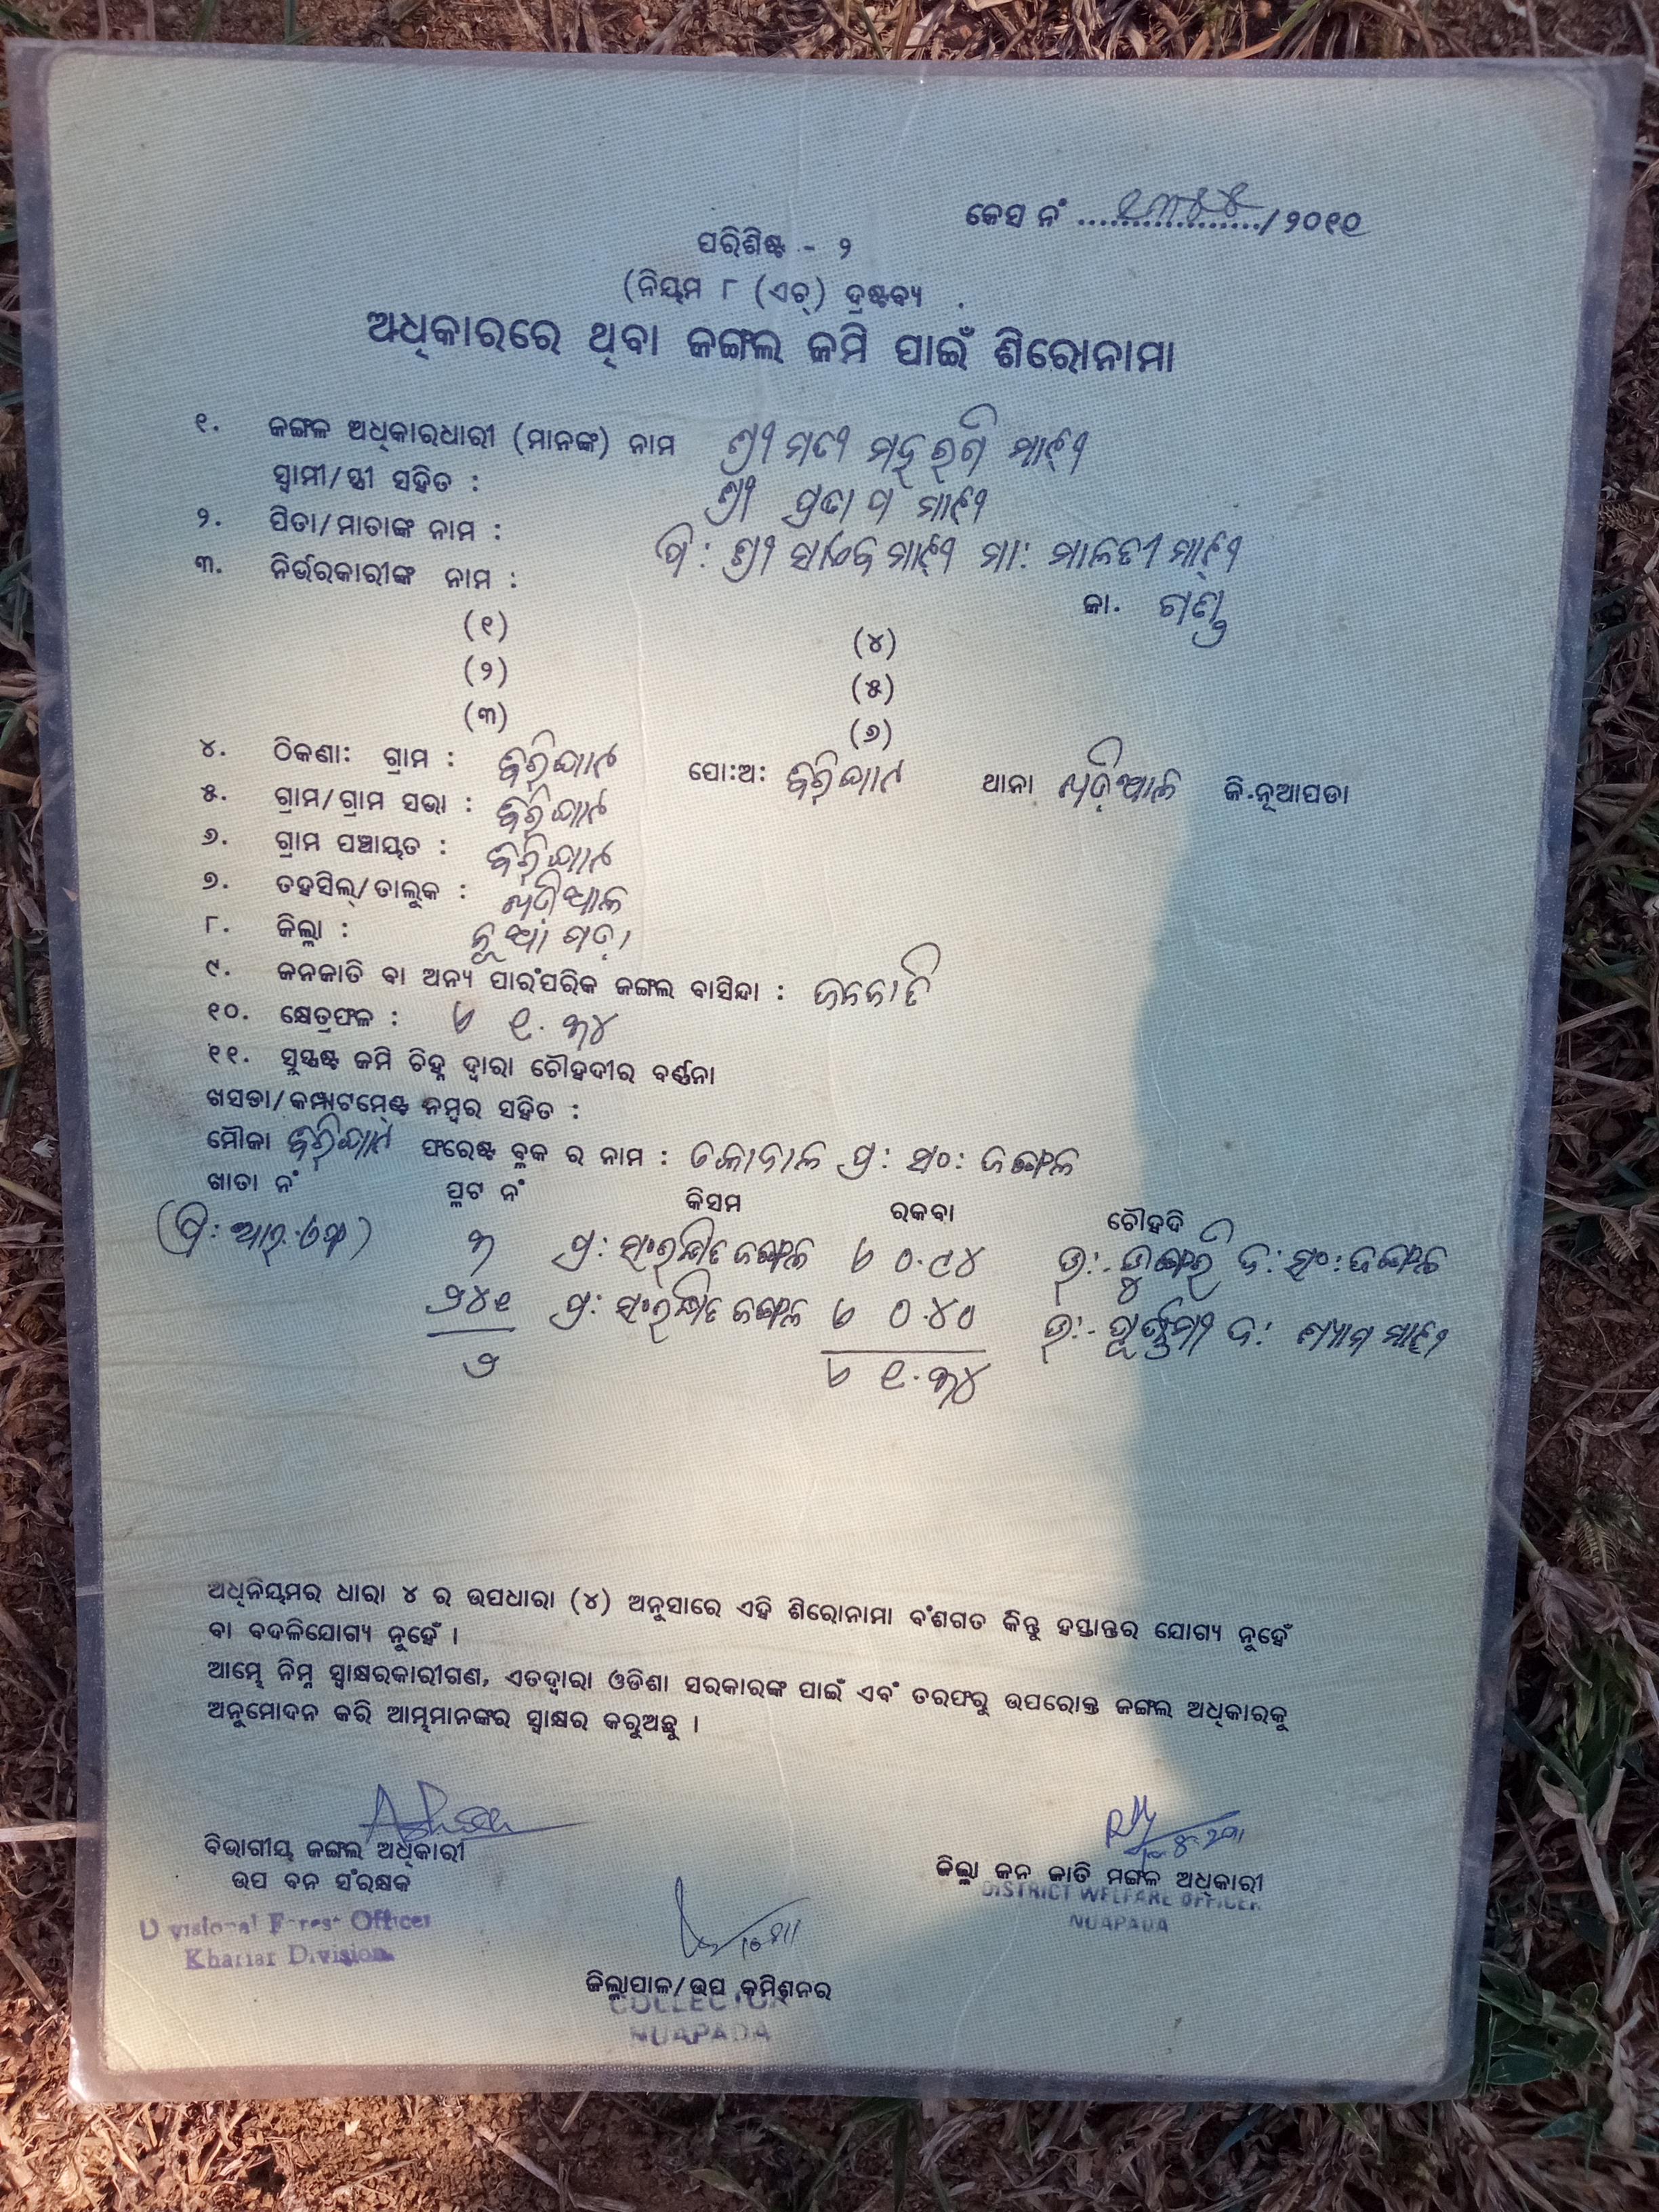 କେସ ନଂ ................./୨୦୧୧
ପରିଶିଷ୍ଟ - ୨
(ନିୟମ ୮ (ଏଚ୍) ଦ୍ରଷ୍ଟବ୍ୟ .
ଅଧିକାରରେ ଥିବା ଜଙ୍ଗଲ ଜମି ପାଇଁ ଶିରୋନାମା
୧. ଜଙ୍ଗଳ ଅଧିକାରଧାରୀ (ମାନଙ୍କ) ନାମ ଶ୍ରୀମତୀ ମାଝୀ
ସ୍ୱାମୀ/ସ୍ତ୍ରୀ ସହିତ : ଶ୍ରୀ ପ୍ରତାପ ମାଝୀ
୨. ପିତା/ମାତାଙ୍କ ନାମ : ପି: ଶ୍ରୀ ମାଝୀ ମା: ମାଳତୀ ମାଝୀ
୩. ନିର୍ଭରକାରୀଙ୍କ ନାମ : ଜା. ଗଣ୍ଡ
(୧) (୪)
(୨) (୫)
(୩) (୬)
୪. ଠିକଣା: ଗ୍ରାମ : ପୋ:ଅ: ଥାନା ଖଡ଼ିଆଳ ଜି.ନୂଆପଡା
୫. ଗ୍ରାମ/ଗ୍ରାମ ସଭା :
୬. ଗ୍ରାମ ପଞ୍ଚାୟତ :
୭. ତହସିଲ୍/ତାଲୁକ : ଖଡ଼ିଆଳ
୮. ଜିଲ୍ଲା : ନୂଆପଡ଼ା
୯. ଜନଜାତି ବା ଅନ୍ୟ ପାରଂପରିକ ଜଙ୍ଗଲ ବାସିନ୍ଦା : ଜନଜାତି
୧୦. କ୍ଷେତ୍ରଫଳ : ୧.୩୪
୧୧. ସୁସ୍ପଷ୍ଟ ଜମି ଚିହ୍ନ ଦ୍ୱାରା ଚୌହଦୀର ବର୍ଣ୍ଣନା
ଖସଡା/କମ୍ପାଟମେଣ୍ଟ ନମ୍ବର ସହିତ :
ମୌଜା ଫରେଷ୍ଟ ବ୍ଲକ ର ନାମ : ପ୍ର: ସଂ: ଜଙ୍ଗଳ
ଖାତା ନଂ ପ୍ଳଟ ନଂ କିସମ ରକବା ଚୌହଦି
(ପି: ଆର.ଏଫ) ୩ ପ୍ର: ସଂରକ୍ଷିତ ଜଙ୍ଗଳ ୦.୯୪ ଉ:- ଡୁଙ୍ଗରି ଦ: ସଂ: ଜଙ୍ଗଳ
୨୪୧ ପ୍ର: ସଂରକ୍ଷିତ ଜଙ୍ଗଳ ୦.୪୦ ଉ:- ଦ: ଶ୍ୟାମ ମାଝୀ
୨ ୧.୩୪
ଅଧିନିୟମର ଧାରା ୪ ର ଉପଧାରା (୪) ଅନୁସାରେ ଏହି ଶିରୋନାମା ବଂଶଗତ କିନ୍ତୁ ହସ୍ତାନ୍ତର ଯୋଗ୍ୟ ନୁହେଁ
ବା ବଦଳିଯୋଗ୍ୟ ନୁହେଁ ।
ଆମ୍ଭେ ନିମ୍ନ ସ୍ୱାକ୍ଷରକାରୀଗଣ, ଏତଦ୍ଦ୍ୱାରା ଓଡିଶା ସରକାରଙ୍କ ପାଇଁ ଏବଂ ତରଫରୁ ଉପରୋକ୍ତ ଜଙ୍ଗଲ ଅଧିକାରକୁ
ଅନୁମୋଦନ କରି ଆମ୍ଭମାନଙ୍କର ସ୍ୱାକ୍ଷର କରୁଅଛୁ ।
ବିଭାଗୀୟ ଜଙ୍ଗଲ ଅଧିକାରୀ
ଉପ ବନ ସଂରକ୍ଷକ
Divisional Forest Officer
Khariar Division
ଜିଲ୍ଲା ଜନ ଜାତି ମଙ୍ଗଳ ଅଧିକାରୀ
DISTRICT WELFARE OFFICER
NUAPADA
ଜିଲ୍ଲାପାଳ/ଉପ କମିଶନର
COLLECTOR
NUAPADA